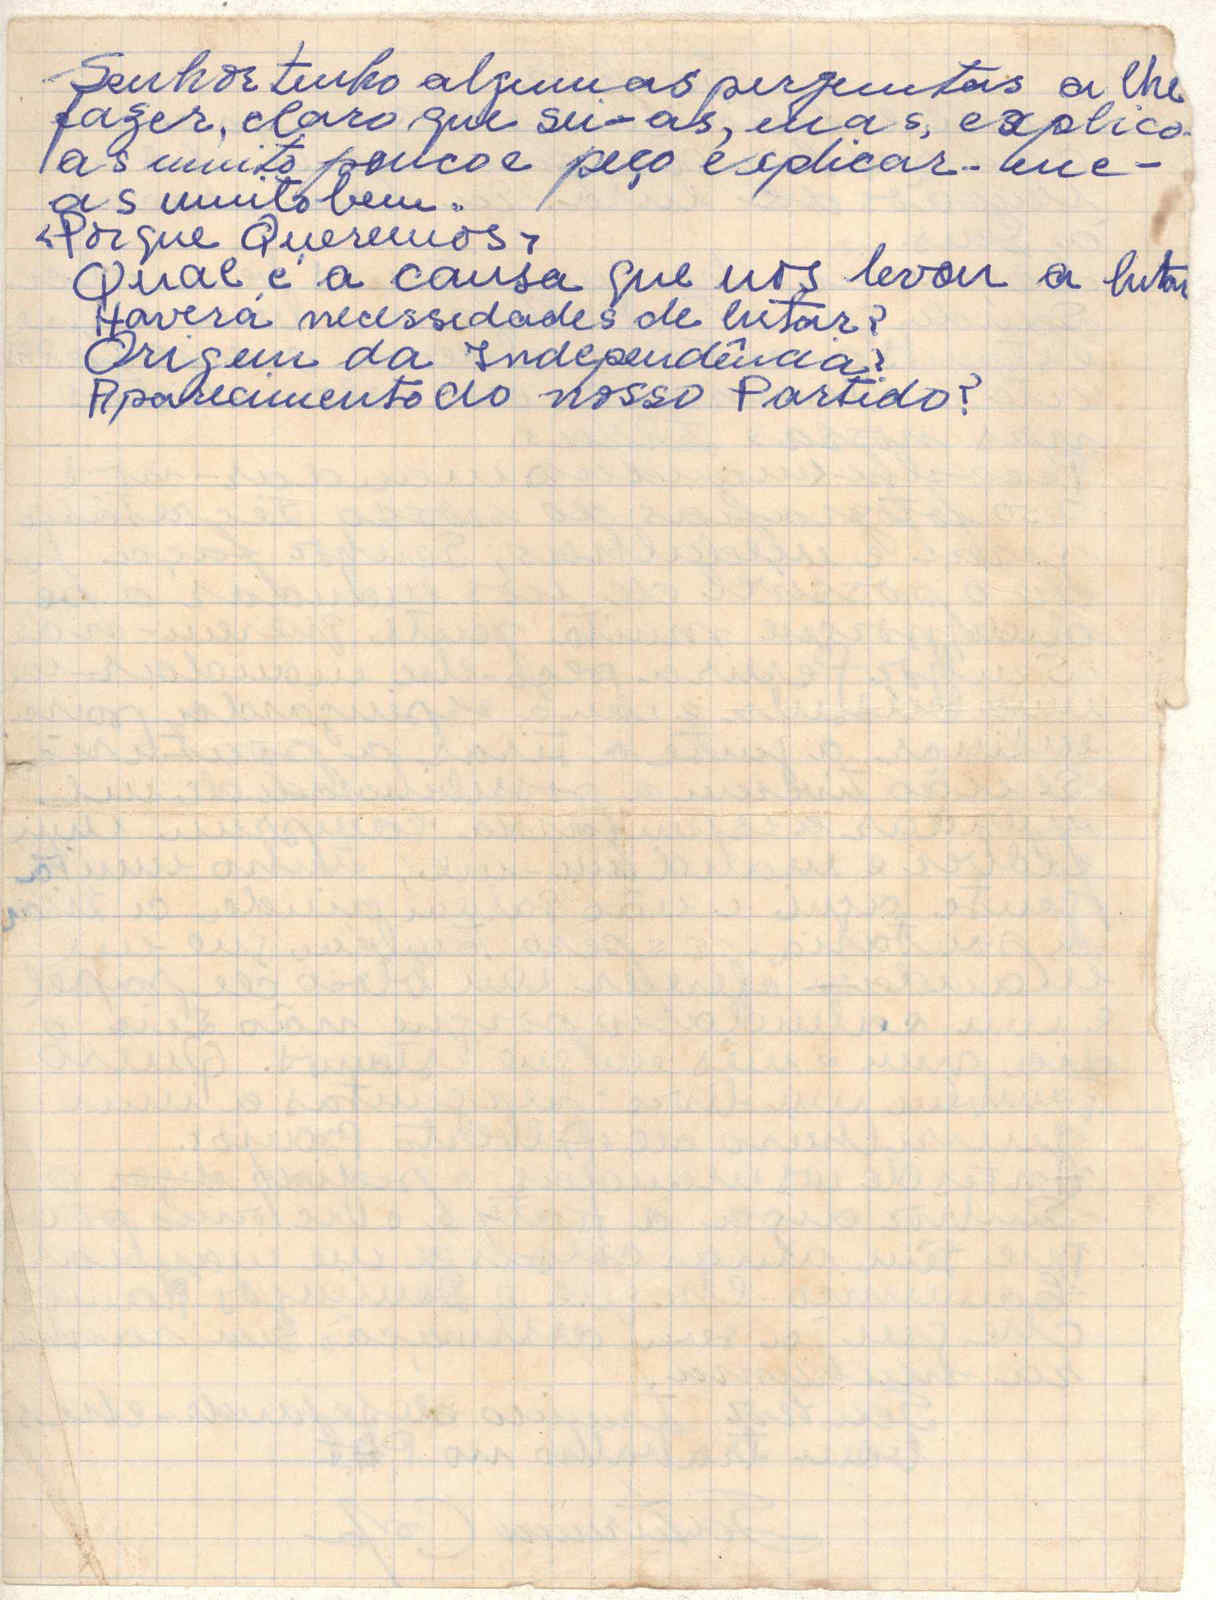 Senhor tenho algumas perguntas a lhe
fazer, claro que sei-as, mas, explico-
as muito pouco e peço explicar-me-
as muito bem.
"Porque Queremos"
Qual é a causa que nos levou a lutar
Haverá necessidades de lutar?
Origem da Independência?
Aparecimento do nosso Partido?